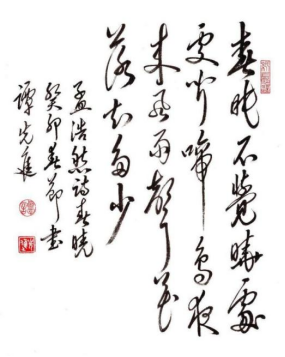 春眠不覺曉處
處聞啼鳥夜
來風雨聲花
落知多少
孟浩然詩春曉
癸卯春節書
譚先進